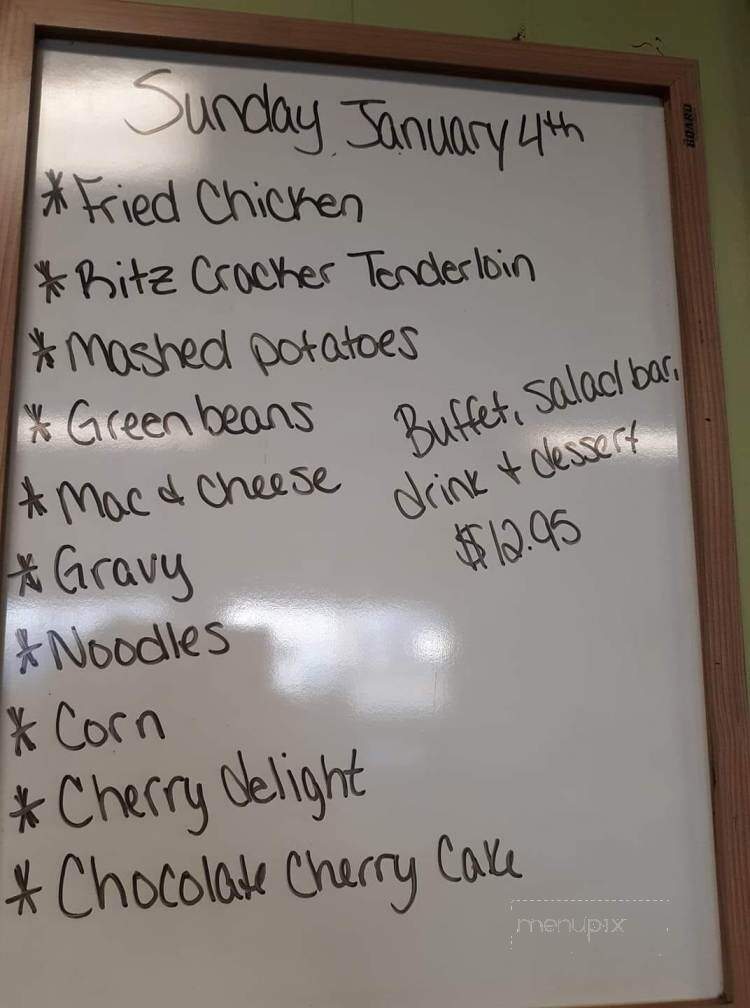 Sunday, January 4th
* Fried Chicken
* Ritz Cracker Tenderloin
* Mashed potatoes
* Green beans
* Mac & cheese
* Gravy
* Noodles
* Corn
* Cherry delight
* Chocolate Cherry Cake
Buffet, salad bar,
drink & dessert
$12.95
BOARD
menupix